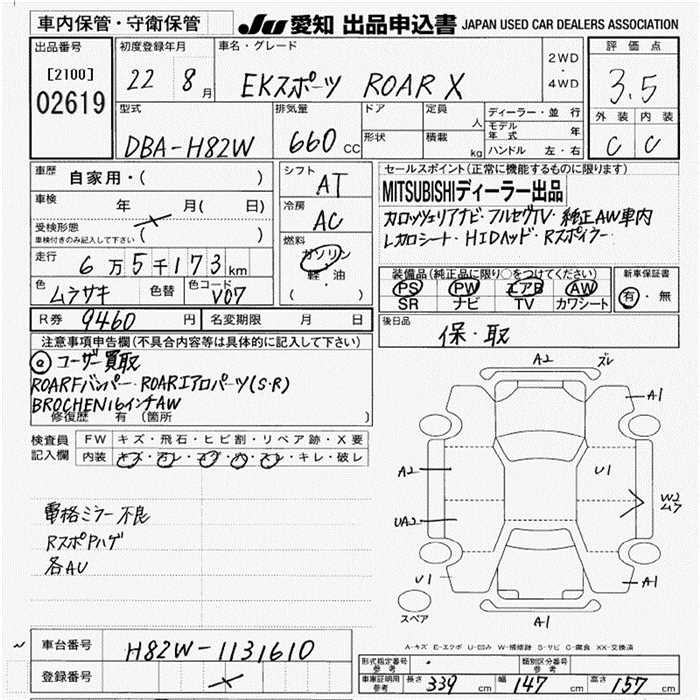 車内保管・守衛保管
JU 愛知 出品申込書 JAPAN USED CAR DEALERS ASSOCIATION
出品番号
[2100]
02619
初度登録年月
22 8月
車名・グレード
EKスポーツ ROAR X
2WD
・
4WD
評価点
3.5
外装 内装
C C
型式
DBA-H82W
排気量
660 CC
ドア
形状
定員
人
積載
kg
ディーラー・並行
モデル年式 年
ハンドル 左・右
車歴
自家用・( )
車検
年 月( 日)
受検形態
車検付きのみ記入して下さい
( )
走行
6万5千173km
色
ムラサキ
色替
色コード
V07
シフト
AT
冷房
AC
燃料
ガソリン
軽・油
( )
セールスポイント(正常に機能するものに限ります)
MITSUBISHIディーラー出品
カロッツェリアナビ・フルセグTV・純正AW車内
レカロシート・HIDヘッド・Rスポイラー
装備品(純正品に限り○をつけてください)
PS PW エアB AW
SR ナビ TV カワシート
新車保証書
有・無
R券 9460円
名変期限 月 日
後日品
保・取
注意事項申告欄(不具合内容等は具体的に記入して下さい)
@ユーザー買取
ROARFバンパー・ROARエアロパーツ(S・R)
BROCHEN16インチAW
修復歴 有(箇所 )
検査員
記入欄
FW キズ・飛石・ヒビ割・リペア跡・X要
内装 キズ・汚レ・コゲ・穴・スレ・キレ・破レ
電格ミラー不良
RスポPハゲ
各AU
A2 ズレ
A1
A2
U1
UA2
W2
ムラ
U1
A1
スペア
A1
A-キズ E-エクボ U-凹み W-補修跡 S-サビ C-腐食 XX-交換済
車台番号
H82W-1131610
登録番号
形式指定番号
参考
類別区分番号
参考
車庫証明用
参考
長さ 339cm
幅 147cm
高さ 157cm